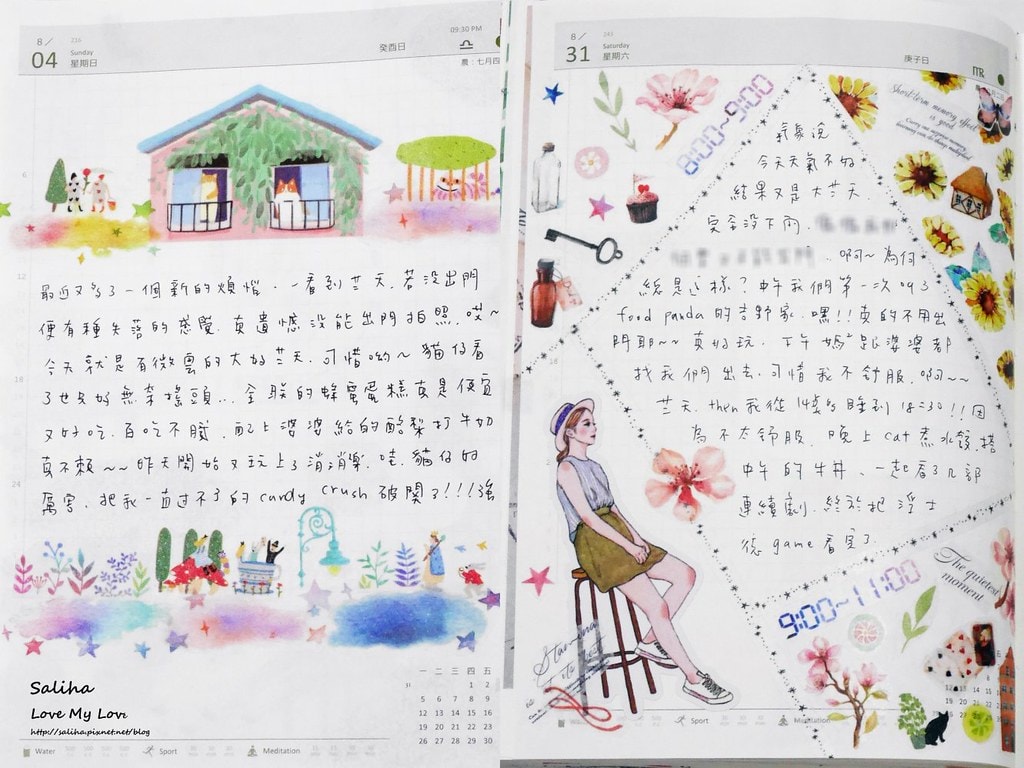 8/
04
216
Sunday
星期日
癸酉日
09:30 PM
農:七月四
6
12
18
24
最近又多了一個新的煩惱,看到藍天,若沒出門
便有種失落的感覺,真遺憾沒能出門拍照,哎~
今天就是有微雲的大好藍天,可惜喲~貓仔看
了也只好無奈搖頭...全聯的蜂蜜蛋糕真是便宜
又好吃,百吃不膩,配上婆婆給的酪梨打牛奶
真不賴~~昨天開始又玩上了消消樂,哇,貓仔好
厲害,把我一直過不了的candy crush破關了!!!強
一 二 三 四 五
1 2
5 6 7 8 9
12 13 14 15 16
19 20 21 22 23
26 27 28 29 30
Saliha
Love My Love
http://saliha.pixnet.net/blog
Water Sport Meditation
8/
31
243
Saturday
星期六
庚子日
8:00~9:00
Short-term memory effect
is good
氣象說
今天天氣不好
結果又是大藍天
完全沒下雨,
,啊~為何
總是這樣?中午我們第一次叫了
food panda的吉野家,嘿!!真的不用出
門耶~~真好玩,下午媽跟婆婆都
找我們出去,可惜我不舒服,啊~~
藍天,then我從14點睡到18:30!!因
為不太舒服,晚上cat煮水餃,搭
中午的牛丼,一起看了几部
連續劇,終於把浮士
德game看完了.
9:00~11:00
The quietest
moment
Water Sport Meditation